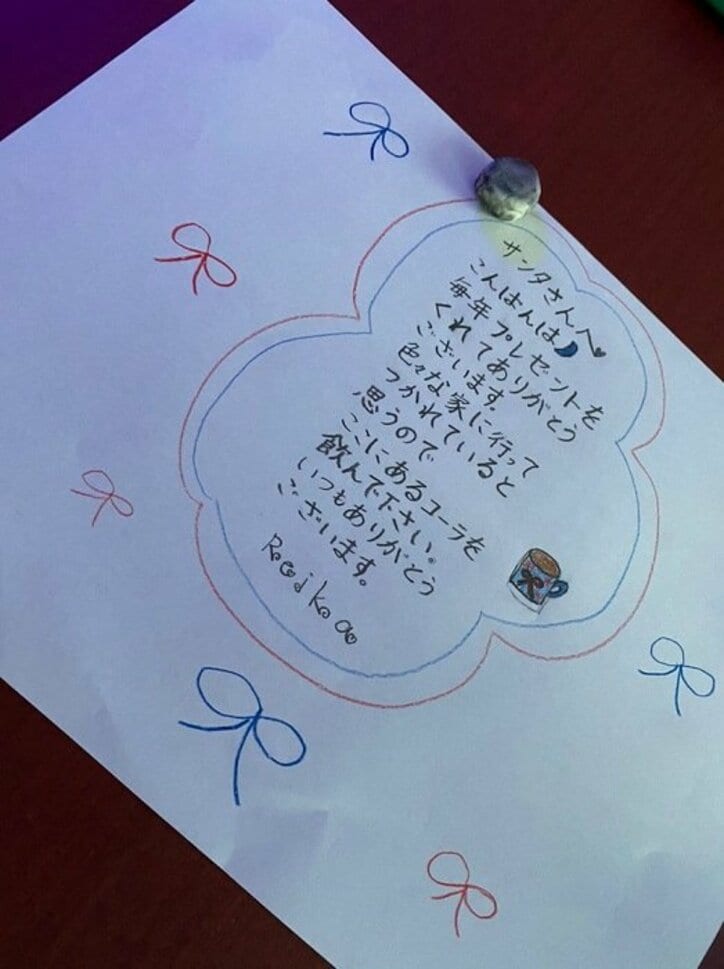 サンタさんへ
こんばんは
毎年プレゼントを
くれてありがとう
ございます。
色々な家に行って
つかれていると
思うので
ここにあるコーラを
飲んで下さい。
いつもありがとう
ございます。